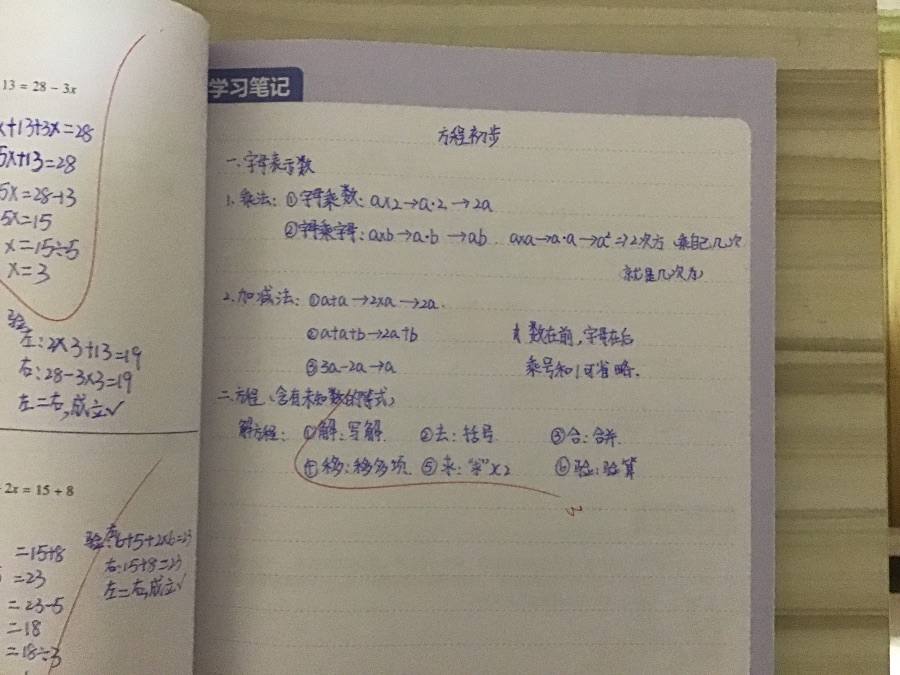 13 = 28 - 3x
x+13+3x=28
5x+13=28
5x=28-13
5x=15
x=15÷5
x=3
验
左:2×3+13=19
右:28-3×3=19
左=右,成立√
2x = 15 + 8
=15+8
=23
=23-5
=18
=18÷3
验:左:6+5+2×6=23
右:15+8=23
左=右,成立√
学习笔记
方程初步
一、字母表示数
1、乘法:①字母乘数:a×2→a·2→2a
②字母乘字母:a×b→a·b→ab a×a→a·a→a²⇒2次方(乘自己几次
就是几次方)
2、加减法:①a+a→2×a→2a
②a+a+b→2a+b 数在前,字母在后
③3a-2a→a 乘号和1可省略.
二、方程(含有未知数的等式)
解方程:①解:写解 ②去:括号 ③合:合并
④移:移多项 ⑤求:"求"x ⑥验:验算